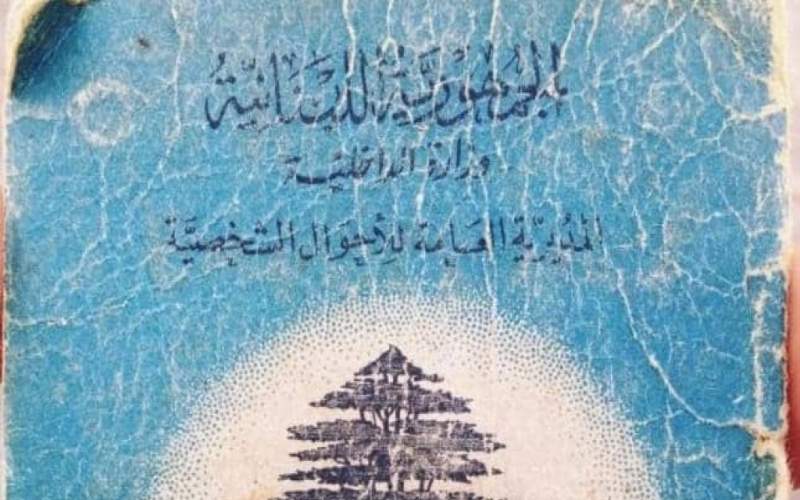 الجمهوريَّة اللبنَانيَّة
وزارة الداخلية
المديريَّة العَامة للأحوَال الشخصيَّة